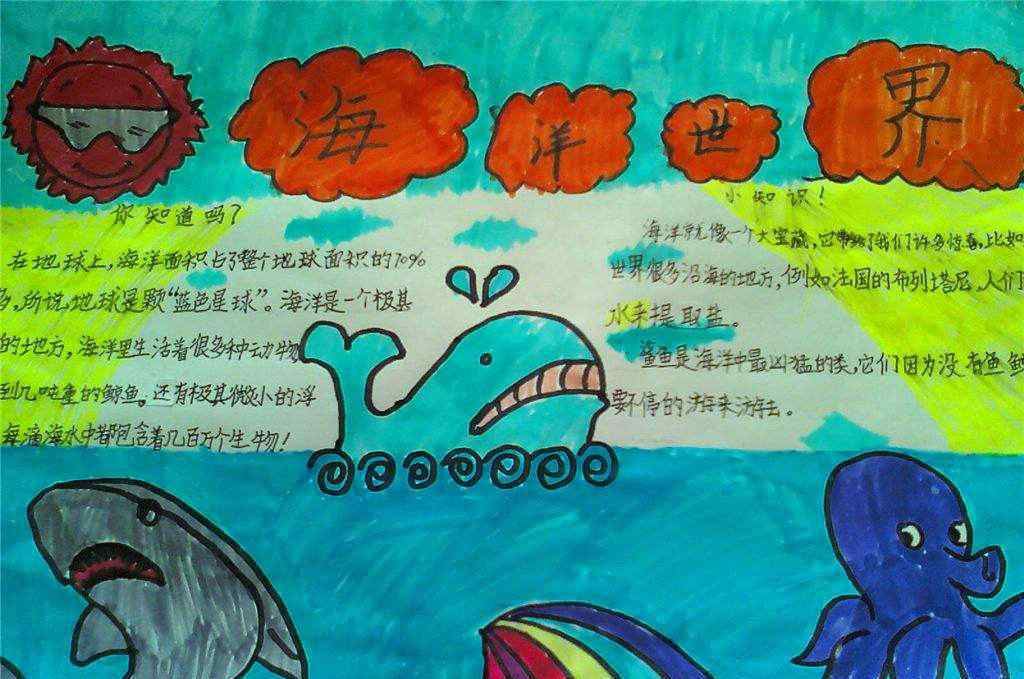 海洋世界
你知道吗?
在地球上,海洋面积占了整个地球面积的70%
多,所说地球是颗“蓝色星球”。海洋是一个极其
的地方,海洋里生活着很多种动物
到几吨重的鲸鱼。还有极其微小的浮
每滴海水中都包含着几百万个生物!
小知识!
海洋就像一个大宝藏,它带给了我们许多惊喜,比如
世界很多沿海的地方,例如法国的布列塔尼,人们
水来提取盐。
鲨鱼是海洋中最凶猛的类,它们因为没有鱼鳔
要不停的游来游去。